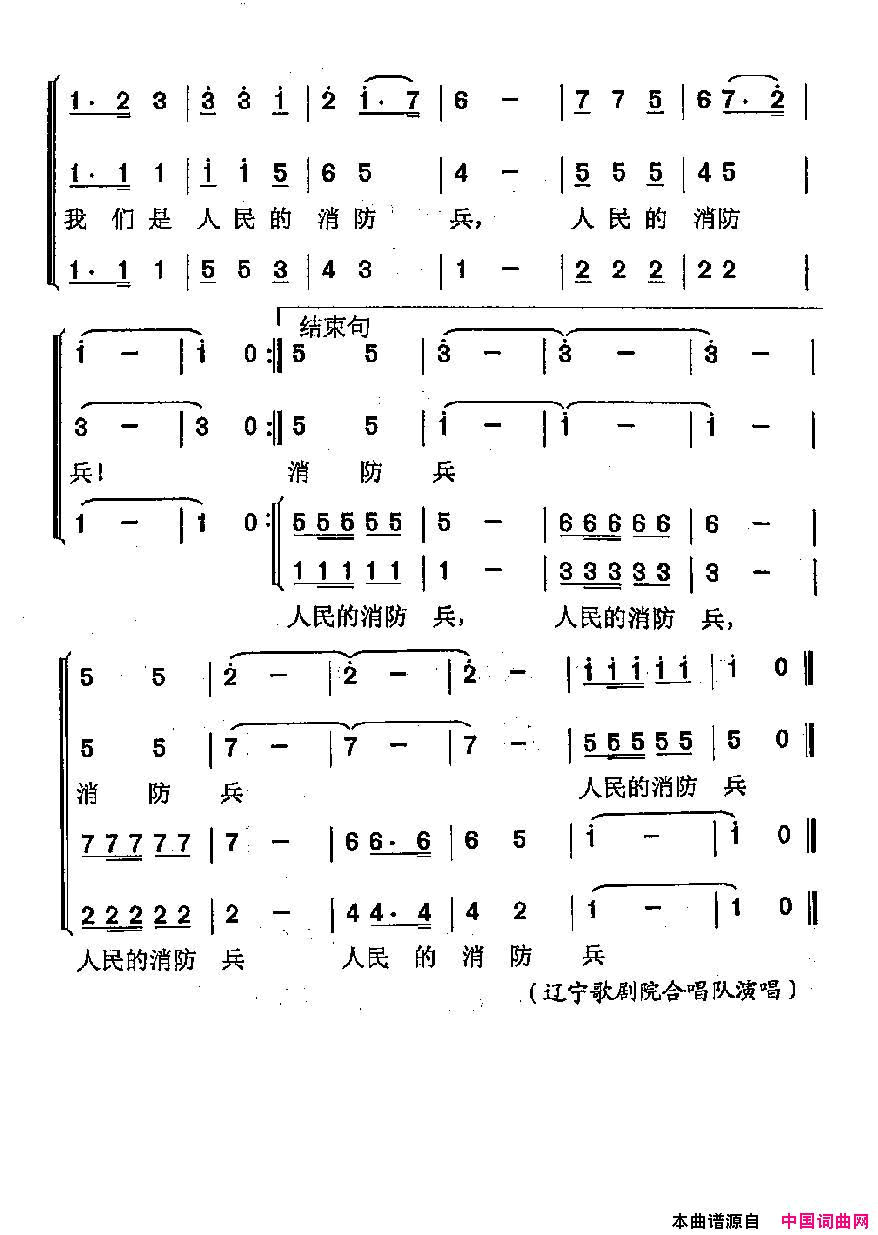 1· 2 3 | 3 3 i | 2 i· 7 | 6 - | 7 7 5 | 6 7· 2 |
1· 1 1 | i i 5 | 6 5 | 4 - | 5 5 5 | 4 5 |
我 们 是 人 民 的 消 防 兵， 人 民 的 消防
1· 1 1 | 5 5 3 | 4 3 | 1 - | 2 2 2 | 2 2 |
结束句
i - | i 0 :|| 5 5 | 3 - | 3 - | 3 - |
3 - | 3 0 :|| 5 5 | i - | i - | i - |
兵！ 消 防 兵
1 - | 1 0 :|| 5 5 5 5 5 | 5 - | 6 6 6 6 6 | 6 - |
1 1 1 1 1 | 1 - | 3 3 3 3 3 | 3 - |
人民的消防 兵， 人民的消防 兵，
5 5 | 2 - | 2 - | 2 - | i i i i i | i 0 ||
5 5 | 7 - | 7 - | 7 - | 5 5 5 5 5 | 5 0 ||
消 防 兵 人民的消防 兵
7 7 7 7 7 | 7 - | 6 6· 6 | 6 5 | i - | i 0 ||
2 2 2 2 2 | 2 - | 4 4· 4 | 4 2 | 1 - | 1 0 ||
人民的消防 兵 人民 的 消 防 兵
（辽宁歌剧院合唱队演唱）
本曲谱源自 中国词曲网